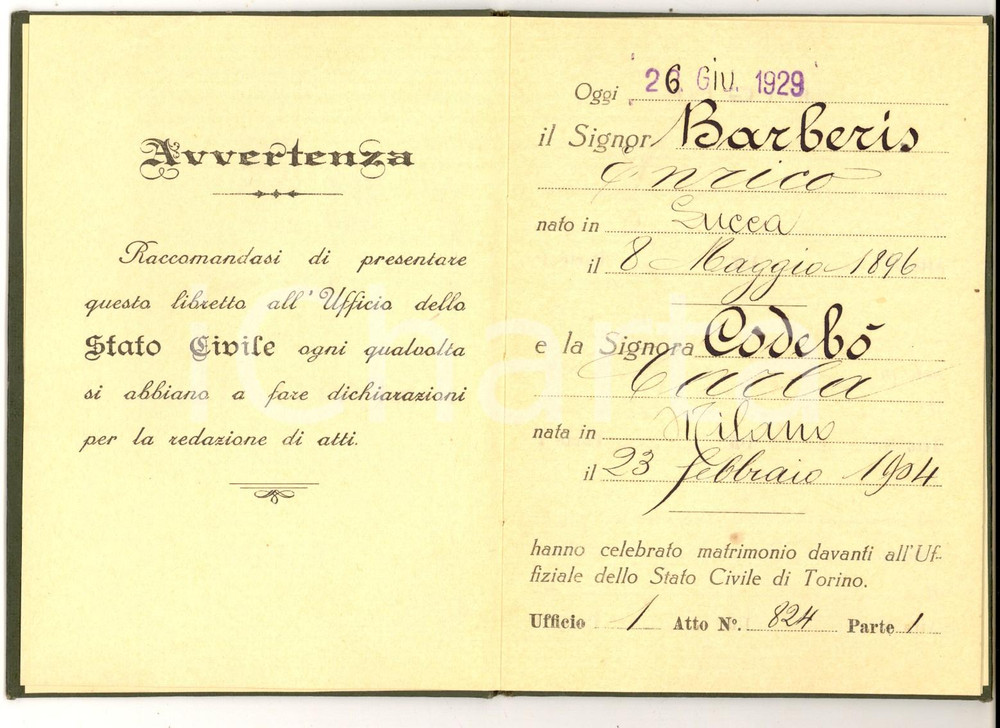 Avvertenza
Raccomandasi di presentare
questo libretto all'Ufficio dello
Stato Civile ogni qualvolta
si abbiano a fare dichiarazioni
per la redazione di atti.
Oggi 26 GIU. 1929
il Signor Barberis
Enrico
nato in Lucca
il 8 Maggio 1896
e la Signora Codebò
Carla
nata in Milano
il 23 febbraio 1904
hanno celebrato matrimonio davanti all'Uf-
fiziale dello Stato Civile di Torino.
Ufficio 1 Atto N°. 824 Parte 1
iCharta